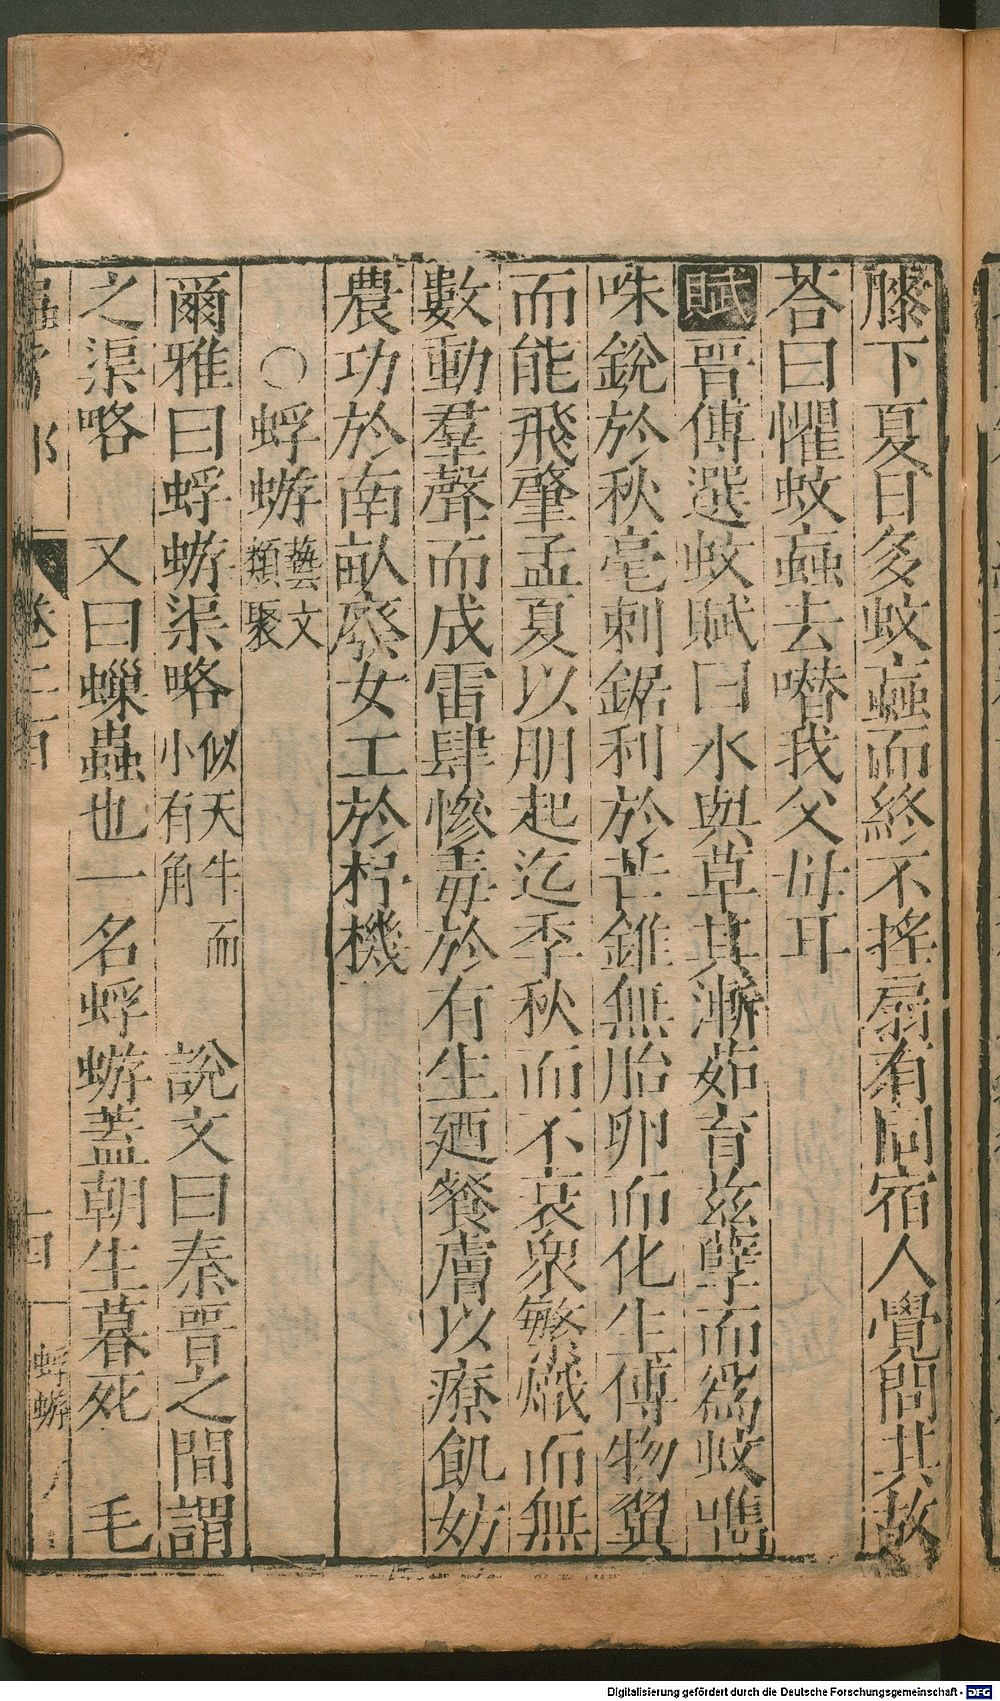 膝下夏日多蚊䖟而終不搖扇有同宿人覺問其故
荅曰懼蚊䖟去噆我父母耳
賦晉傅選蚊賦曰水與草其漸茹育茲孽而爲蚊嘴
咮銳於秋毫刺鋸利於芒錐無胎卵而化生傅物翼
而能飛肇孟夏以朋起迄季秋而不衰衆繁熾而無
數動羣聲而成雷肆慘毒於有生廼餐膚以療飢妨
農功於南畝廢女工於杼機
○蜉蝣藝文類聚
爾雅曰蜉蝣渠略似天牛而小有角 說文曰秦晉之間謂
之渠略 又曰蠅蟲也一名蜉蝣蓋朝生暮死 毛
卷二十四 十四 蜉蝣
Digitalisierung gefördert durch die Deutsche Forschungsgemeinschaft - DFG